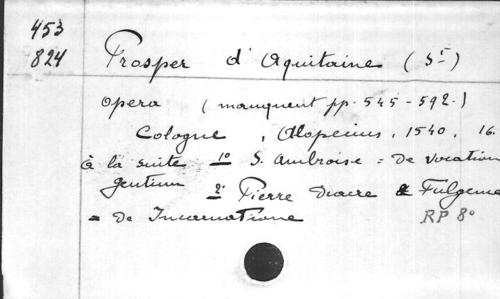 453
824
Prosper d'Aquitaine (St)
Opera (manquent pp. 545-592.)
Cologne, Alopecius, 1540, 16.
à la suite 1º S. Ambroise = De vocation
gentium 2º Pierre Diacre & Fulgence
= de Incarnatione
RP 8º